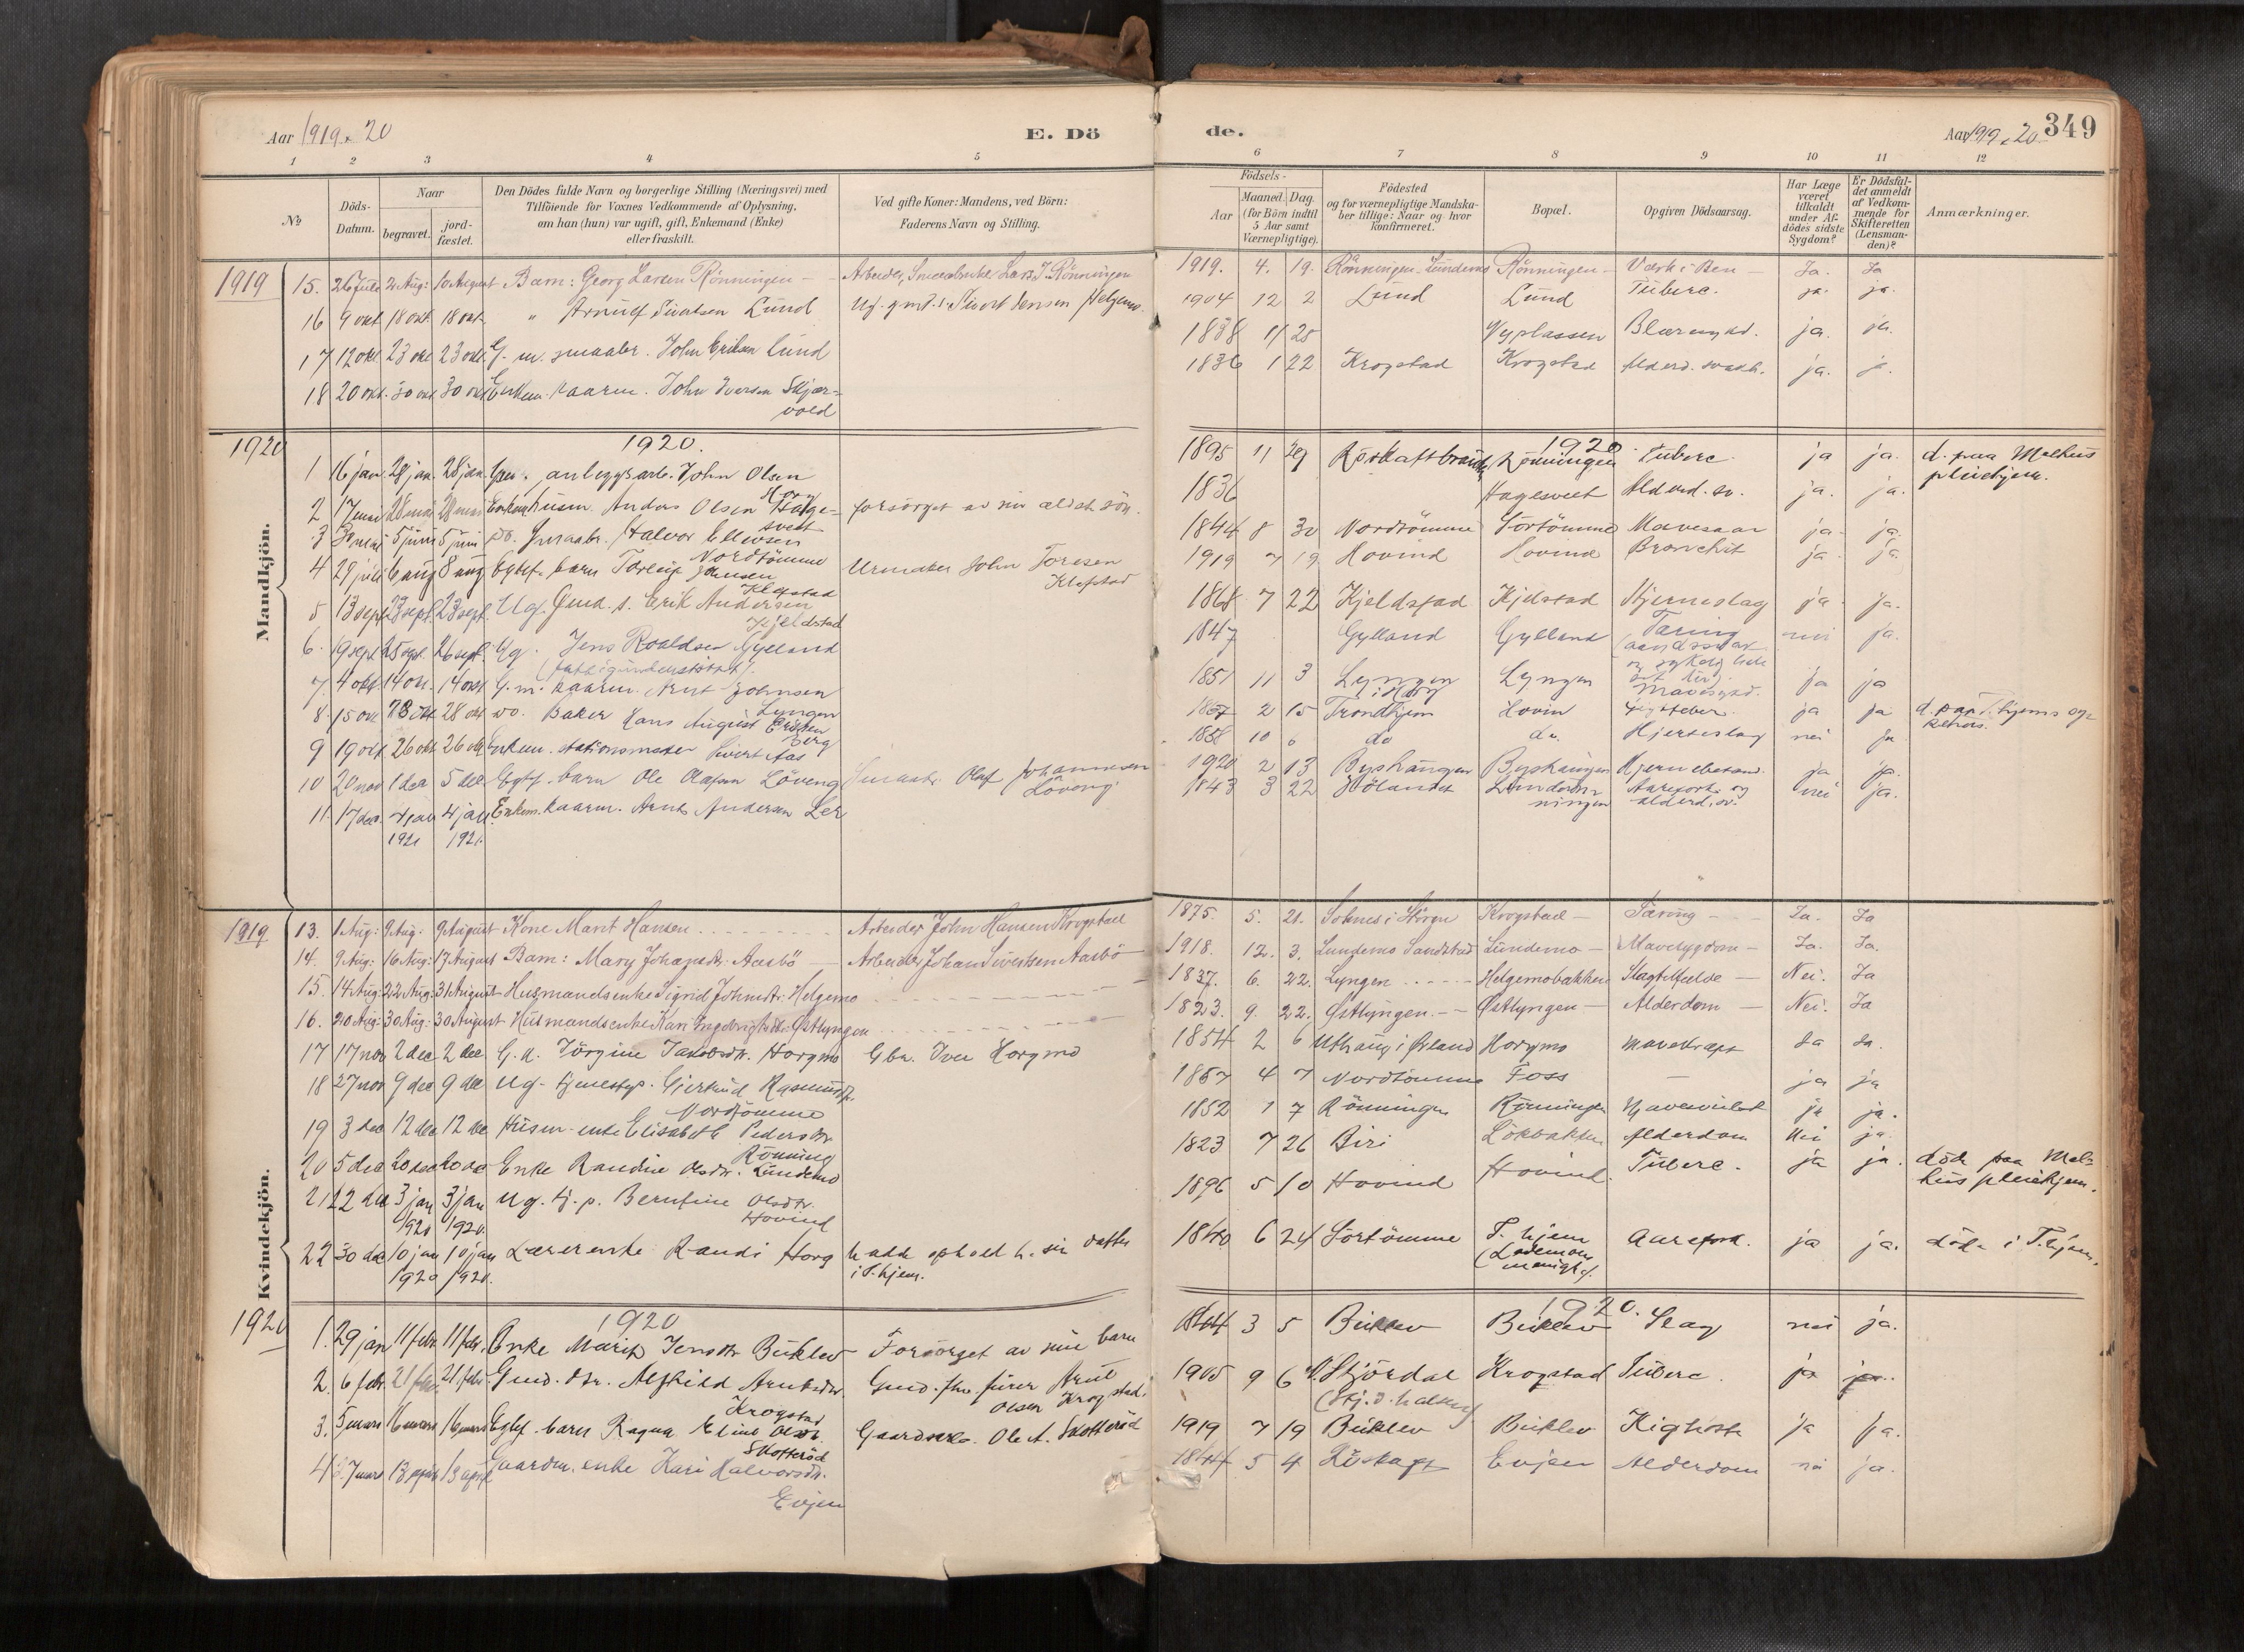 Aar 1919 & 20
E. Dö
de.
Aar 1919 & 20
349
1 2 3 4 5
6 7 8 9 10 11 12
No
Döds-Datum.
Naar
begravet.
jord-fæstet.
Den Dödes fulde Navn og borgerlige Stilling (Næringsvei) med
Tilföiende for Voxnes Vedkommende af Oplysning,
om han (hun) var ugift, gift, Enkemand (Enke)
eller fraskilt.
Ved gifte Koner: Mandens, ved Börn:
Faderens Navn og Stilling.
Födsels-
Aar
Maaned. Dag.
(for Börn indtil
5 Aar samt
Værnepligtige).
Födested
og for værnepligtige Mandska-
ber tillige: Naar og hvor
konfirmeret.
Bopæl.
Opgiven Dödsaarsag.
Har Læge
været
tilkaldt
under Af-
dödes sidste
Sygdom?
Er Dödsfal-
det anmeldt
af Vedkom-
mende for
Skifteretten
(Lensman-
den)?
Anmærkninger.
Mandkjön.
1919
15. 26 Juli 2 Aug: 10 August Barn: Georg Larsen Rönningen Lars J. Rönningen 1919. 4. 19. Rönningen Lundemo Rönningen Værk i Ben Ja. Ja
16 9 okt 18 okt 18 okt " Lund 1904 12 2 Lund Lund Tuberc. ja. ja.
17 12 okt 23 okt 23 okt. G. m. smaabr. John Eriksen Lund 1838 11 25 Nyplassen ja. ja.
18 20 okt. 30 okt 30 okt Enkem. kaarm. John Iversen Skjær-
vold 1836 1 22 Krogstad Krogstad alderd. svakh. ja. ja.
1920
1920.
1920
1 16 jan 28 jan. 28 jan. anleggsarb. John Olsen 1895 11 29 Rönningen Tuberc. ja ja. d. paa Melhus
pleiehjem.
2 Enkem husm. Anders Olsen Hage-
svedt forsörget av sin ældste sön. 1836 Hagesvedt Ald erd. sv. ja. ja.
3 5 juni 5 juni do. smaabr. Halvor Ellevsen
Nordtömme 1844 8 30 Nordtömme Sörtömme Mavesaar ja. ja.
4 28 juli 6 aug 8 aug Egtef. barn Torleif Johnsen
Klefstad Urmaker John Toresen
Klefstad 1919 7 19 Hovind Hovind Bronchit ja. ja.
5 13 sept 23 sept. 23 sept. Ug. Gmd. s. Erik Andersen
Kjeldstad 1868 7 22 Kjeldstad Kjelstad Hjerneslag ja. ja.
6. 19 sept 25 sept. 26 sept. Ug. Jens Roaldsen Gylland
(fattigunderstöttet). 1847 Gylland Gylland Tæring nei ja.
7 4 okt 14 okt. 14 okt G. m. kaarm. Arnt Johnsen
Lyngen 1851 11 3 Lyngen
i Horg Lyngen Mavesykd. ja ja
8. 15 okt 28 okt 28 okt do. Baker Hans August Eriksen
Berg 1867 2 15 Trondhjem Hovin Gigtfeber. ja ja
9 19 okt 26 okt 26 okt Enkem. stationsmester Sivert Aas 1858 10 6 do do. Hjerteslag nei ja
10 20 nov 1 dec 5 dec Egtf. barn Ole Olafsen Löveng Smaabr. Olaf Johannesen
Löveng 1920 2 13 Byskaugen Byskaugen Hjernebetænd. ja ja.
11. 17 dec. 4 jan 4 jan Enkem. kaarm. Arnt Andersen Ler
1921 1921. 1843 3 22 Hölandet Lundemo Aarefork. og
alderd. sv. nei ja.
Kvindekjön.
1919
13. 1 Aug: 9 Aug: 9 August Kone Marit Hansen Arbeider John Hansen Krogstad 1875. 5. 21. Soknes i Stören Krogstad Tæring Ja. Ja
14. 9. Aug: 16 Aug: 17 August Barn: Mary Johansdtr. Aasbö Arbeider Johan Sivertsen Aasbö 1918. 12. 3. Lundemo Sandstad Lundemo Mavesygdom Ja. Ja.
15. 14 Aug: 22 Aug: 31 August Husmandsenke Sigrid Johnsdtr: Helgemo 1837. 6. 22. Lyngen Helgemobakken Slagtilfælde Nei. Ja
16. 20 Aug: 30 Aug: 30 August Husmandsenke Kari Ingebrigtsdtr: Östlyngen 1823. 9. 22. Östlyngen Östlyngen Alderdom Nei. Ja
17 17 nov 2 dec 2 dec G. k. Jörgine Jakobsdtr. Horgmo Gbr. Iver Horgmo 1854 2 6 Uthaug i Örland Horgmo mavekræft Ja Ja.
18 27 nov 9 dec 9 dec Ug. tjenestep. Gjertrud Rasmusdtr.
Nordtömme 1867 4 7 Nordtömme Foss — ja ja
19 3 dec 12 dec 12 dec Husm. enke Elisabeth Pedersdtr.
Rönning 1852 1 7 Rönningen Rönningen ja ja.
20 5 dec 20 dec 20 dec Enke Randine Olsdtr. Lundemo 1823 7 26 Biri Lökbakken Alderdom Nei ja
21 22 dec 3 jan 3 jan Ug. tj. p. Berntine Olsdtr.
1920 1920. Hovind 1896 5 10 Hovind Hovind. Tuberc. ja ja. döde paa Mel-
hus pleiehjem.
22 30 dec 10 jan 10 jan Lærerenke Randi Horg hadde ophold h. sin datter
1920 1920. i T.hjem. 1840 6 24 Sörtömme T. hjem
(Lademoen
menighet). Aarefork. ja ja. döde i T.hjem.
1920
1920
1920.
1. 29 jan 11 febr. 11 febr. Enke Marit Jensdtr Buklev Forsörget av sine barn 1844 3 5 Buklev Buklev Slag nei ja.
2. 6 febr. 21 febr. 21 febr. Gmd. dtr. Alfhild Arntsdtr.
Krogstad Arnt
Olsen Krogstad. 1905 9 6 Stjördal Krogstad Tuberc. ja ja.
3. 5 mars 16 mars 16 mars Egtf. barn Ragna Eline Olsdtr.
Skotteröd Ole A. Skotteröd 1919 7 19 Buklev Buklev Kighoste ja ja.
4 27 mars 13 april 13 april Gaardm. enke Kari Halvorsdtr.
Evjen 1844 5 4 Evjen Alderdom nei ja.